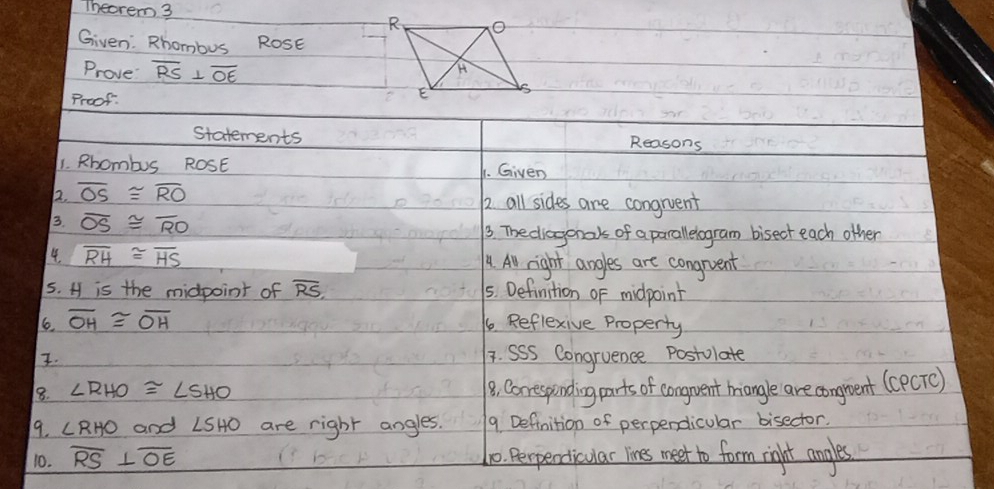 Theorem 3
Given: Rhombus ROSE
Prove: RS ⊥ OE
Proof:
R O
H
E S
Statements Reasons
1. Rhombus ROSE 1. Given
2. OS ≅ RO 2. all sides are congruent
3. OS ≅ RO 3. The diagonals of a parallelogram bisect each other
4. RH ≅ HS 4. All right angles are congruent
5. H is the midpoint of RS. 5. Definition of midpoint
6. OH ≅ OH 6. Reflexive Property
7. 7. SSS Congruence Postulate
8. ∠RHO ≅ ∠SHO 8. Corresponding parts of congruent triangle are congruent (CPCTC)
9. ∠RHO and ∠SHO are right angles. 9. Definition of perpendicular bisector.
10. RS ⊥ OE 10. Perpendicular lines meet to form right angles.